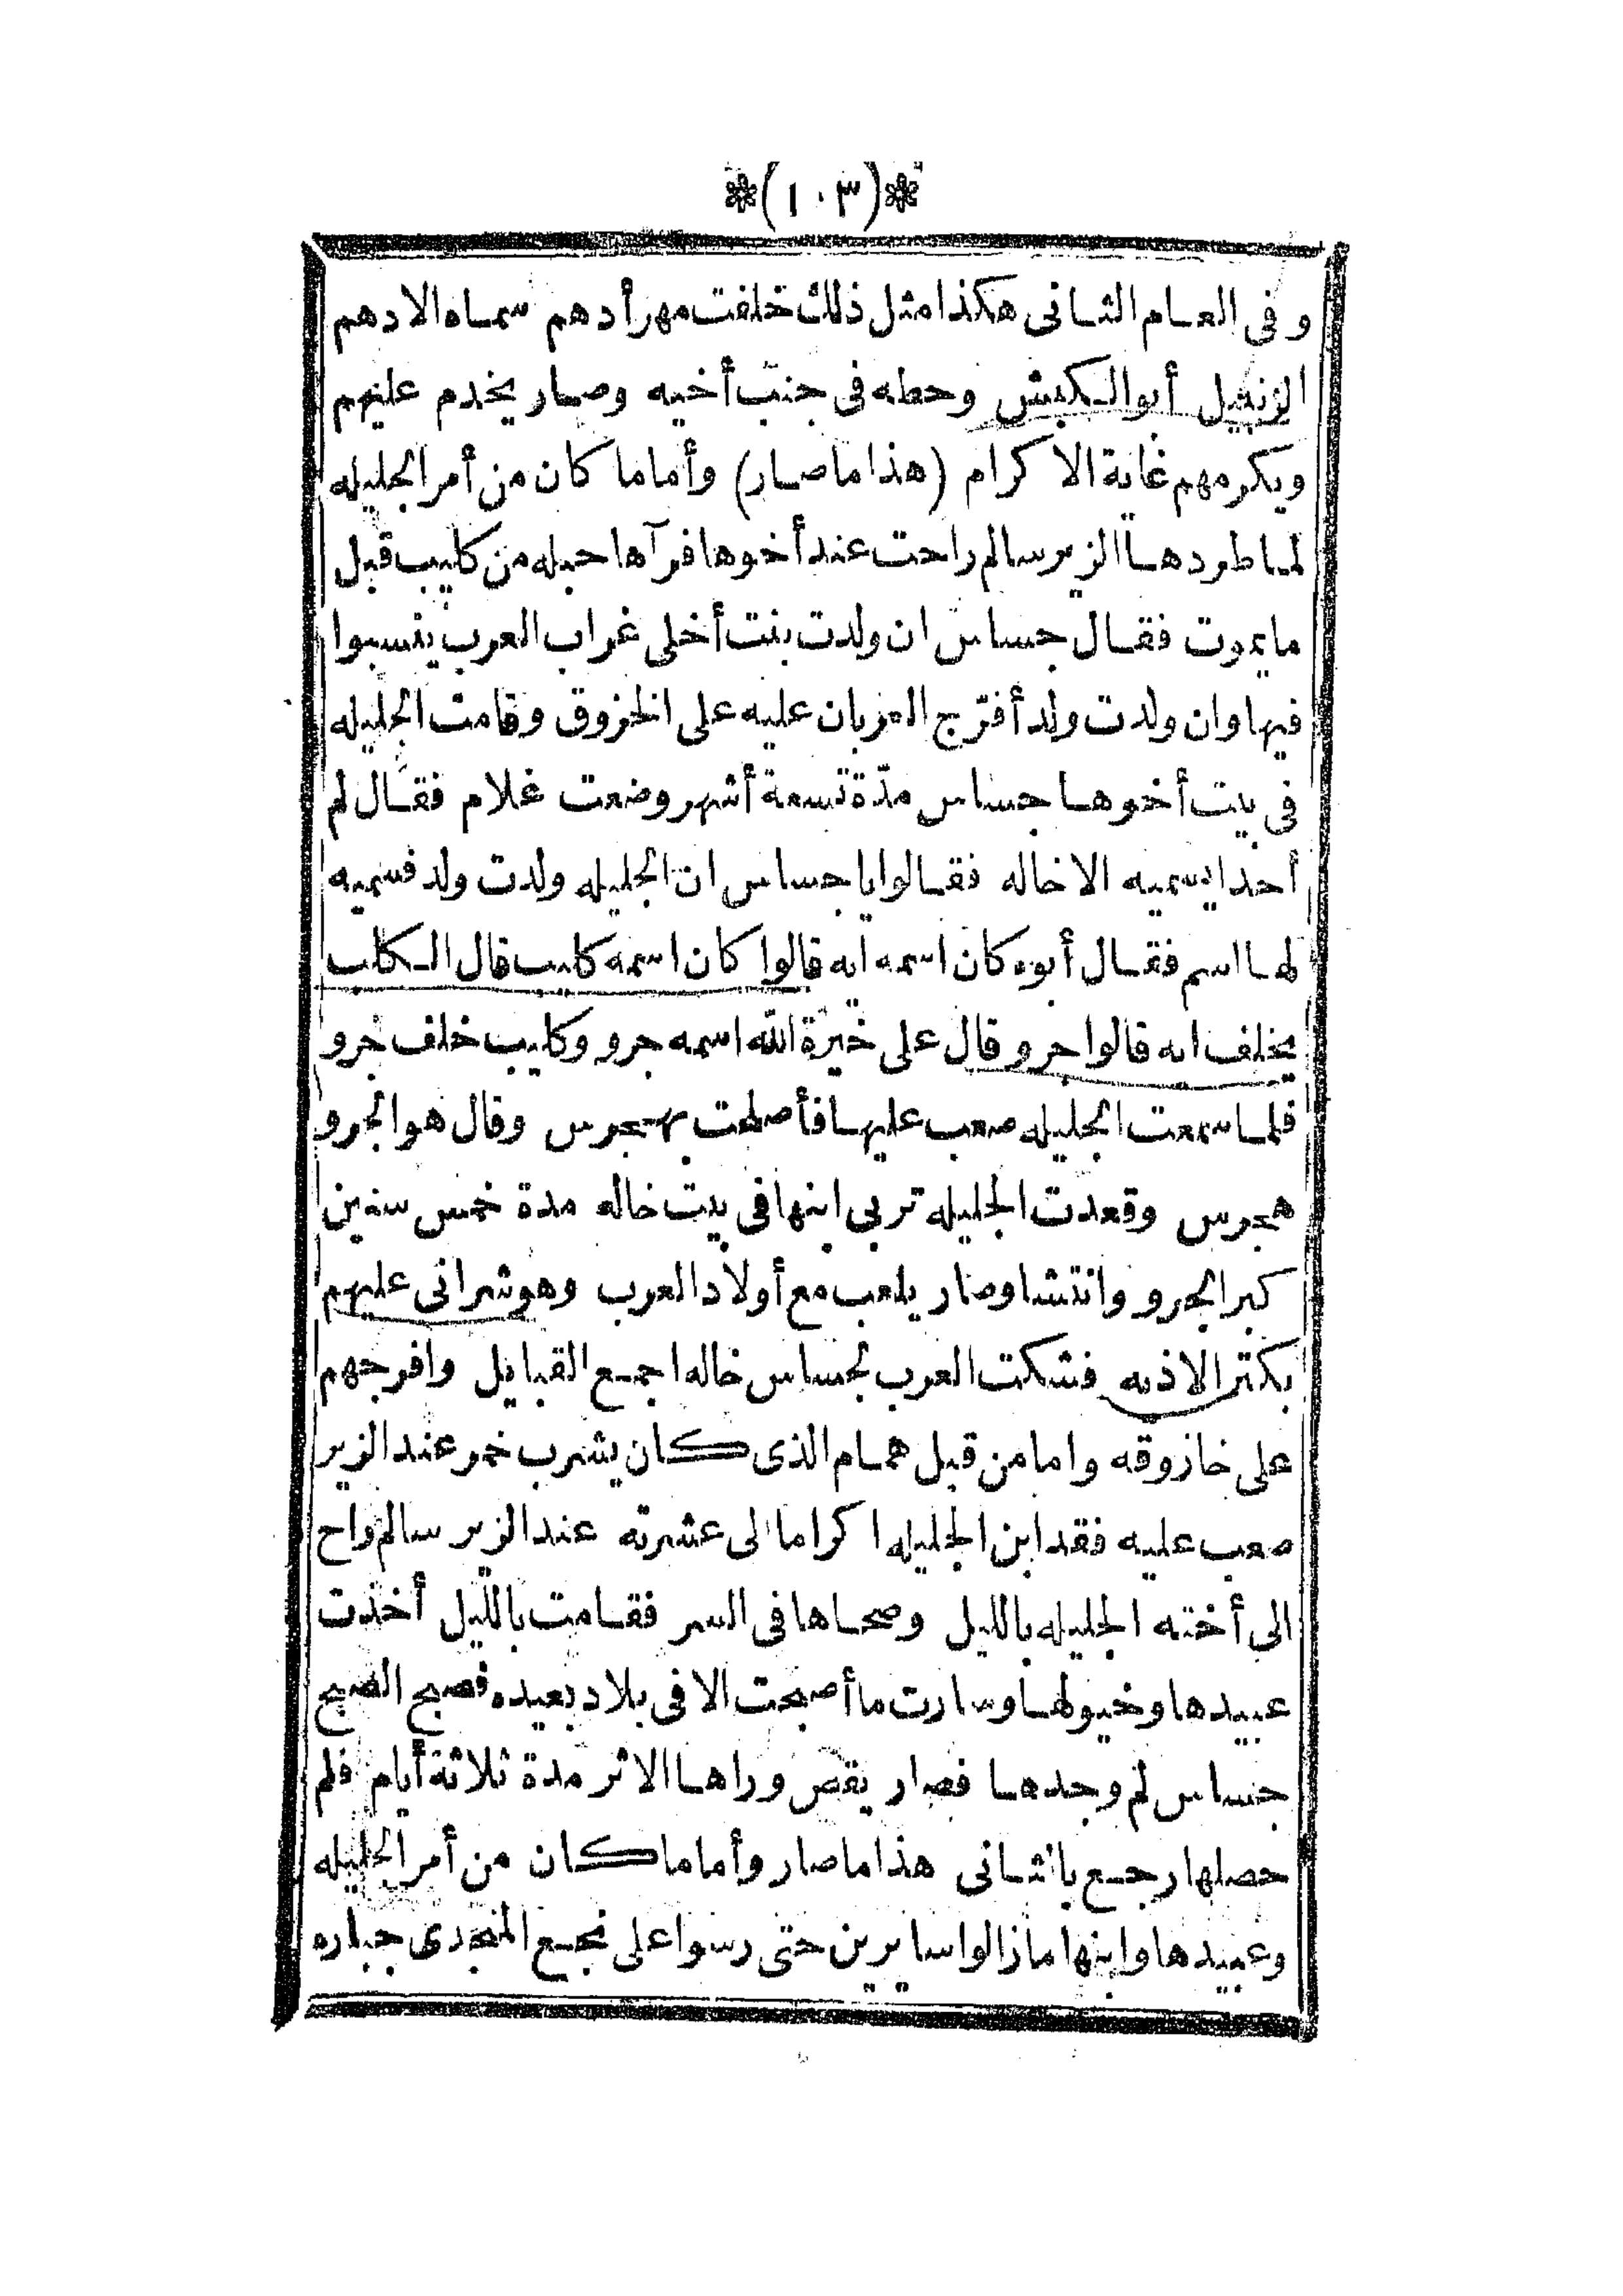 *(١٠٣)*
وفى العام الثانى هكذا مثل ذلك خلفت مهر أدهم سماه الادهم
الزنبيل أبو الكبش وحطه فى جنب أخيه وصار يخدم عليهم
ويكرمهم غاية الاكرام (هذا ما صار) وأما ما كان من أمر الجليله
لما طردها الزير سالم راحت عند أخوها فرآها حبله من كليب قبل
ما يموت فقال جساس ان ولدت بنت أخلى غراب العرب ينسبوا
فيها وان ولدت ولد أفرّج العربان عليه على الخزوق وقامت الجليله
فى بيت أخوها جساس مدّة تسعة أشهر وضعت غلام فقال لم
أحد ايسميه الا خاله فقالوا يا جساس ان الجليله ولدت ولد فسميه
لها اسم فقال أبوه كان اسمه ايه قالوا كان اسمه كليب قال الكلب
يخلف ايه قالوا جرو قال على خيرة الله اسمه جرو وكليب خلف جرو
فلما سمعت الجليله صعب عليها فأصلحت بهجرس وقال هو الجرو
هجرس وقعدت الجليله تربى ابنها فى بيت خاله مدة خمس سنين
كبر الجرو وانتشا وصار يلعب مع أولاد العرب وهو شرانى عليهم
بكتر الاذيه فشكت العرب لجساس خاله اجمع القبايل وافرجهم
على خازوقه واما من قبل همام الذى كان يشرب خمر عند الزير
صعب عليه فقد ابن الجليله اكراما لى عشرته عند الزير سالم راح
الى أخته الجليله بالليل وصحاها فى السر فقامت بالليل أخذت
عبيدها وخيولها وسارت ما أصبحت الا فى بلاد بعيده فصبح الصبح
جساس لم وجدها فصار يقص وراها الاثر مدة ثلاثة أيام فلم
حصلها رجع بالثانى هذا ما صار وأما ما كان من أمر الجليله
وعبيدها وابنها ما زالوا سايرين حتى رسوا على نجع المنجدى جباره